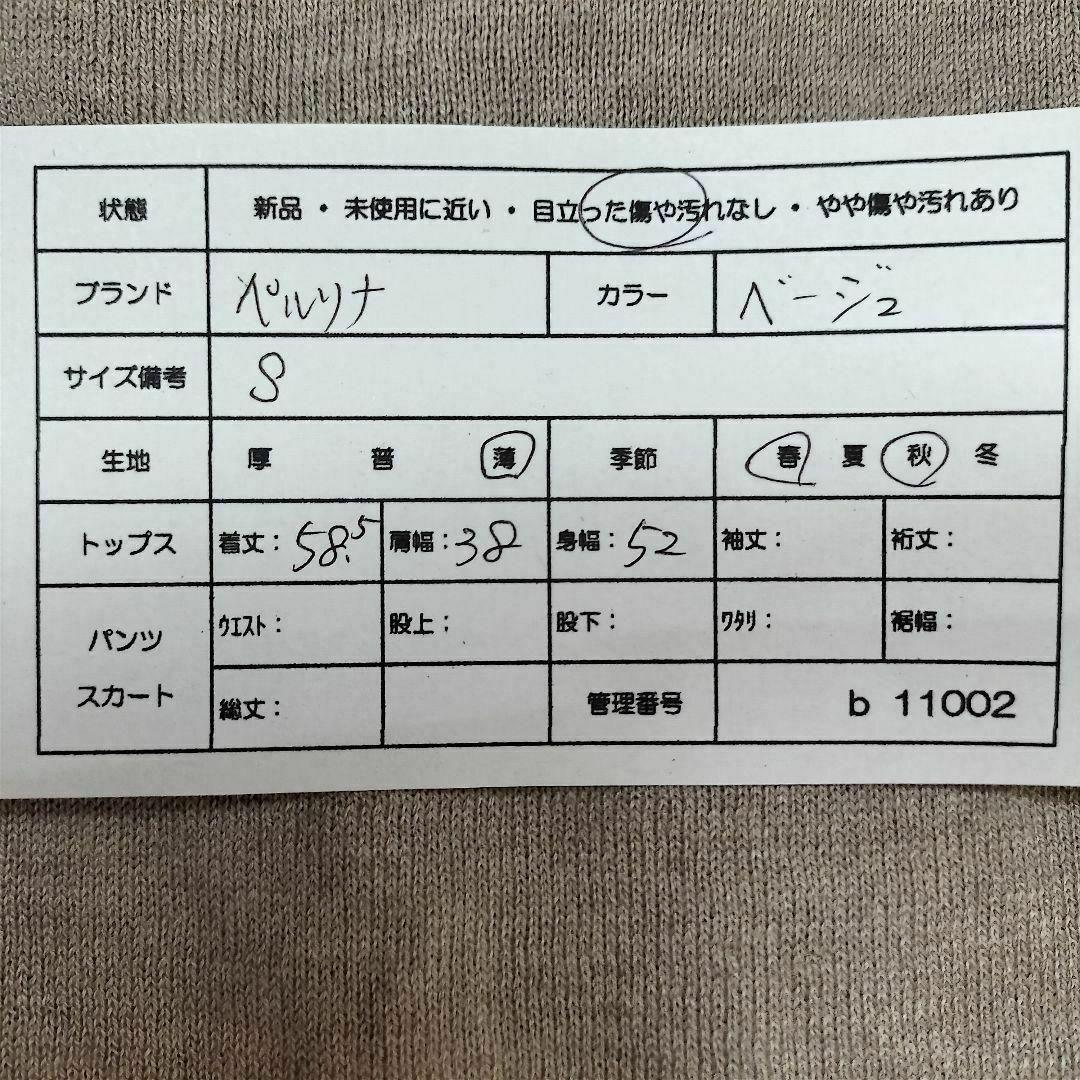 状態 新品・未使用に近い・目立った傷や汚れなし・やや傷や汚れあり
ブランド ペルリナ カラー ベージュ
サイズ備考 S
生地 厚 普 薄 季節 春 夏 秋 冬
トップス 着丈：58.5 肩幅：38 身幅：52 袖丈： 裄丈：
パンツ スカート ウエスト： 股上： 股下： ワタリ： 裾幅：
総丈： 管理番号 b 11002